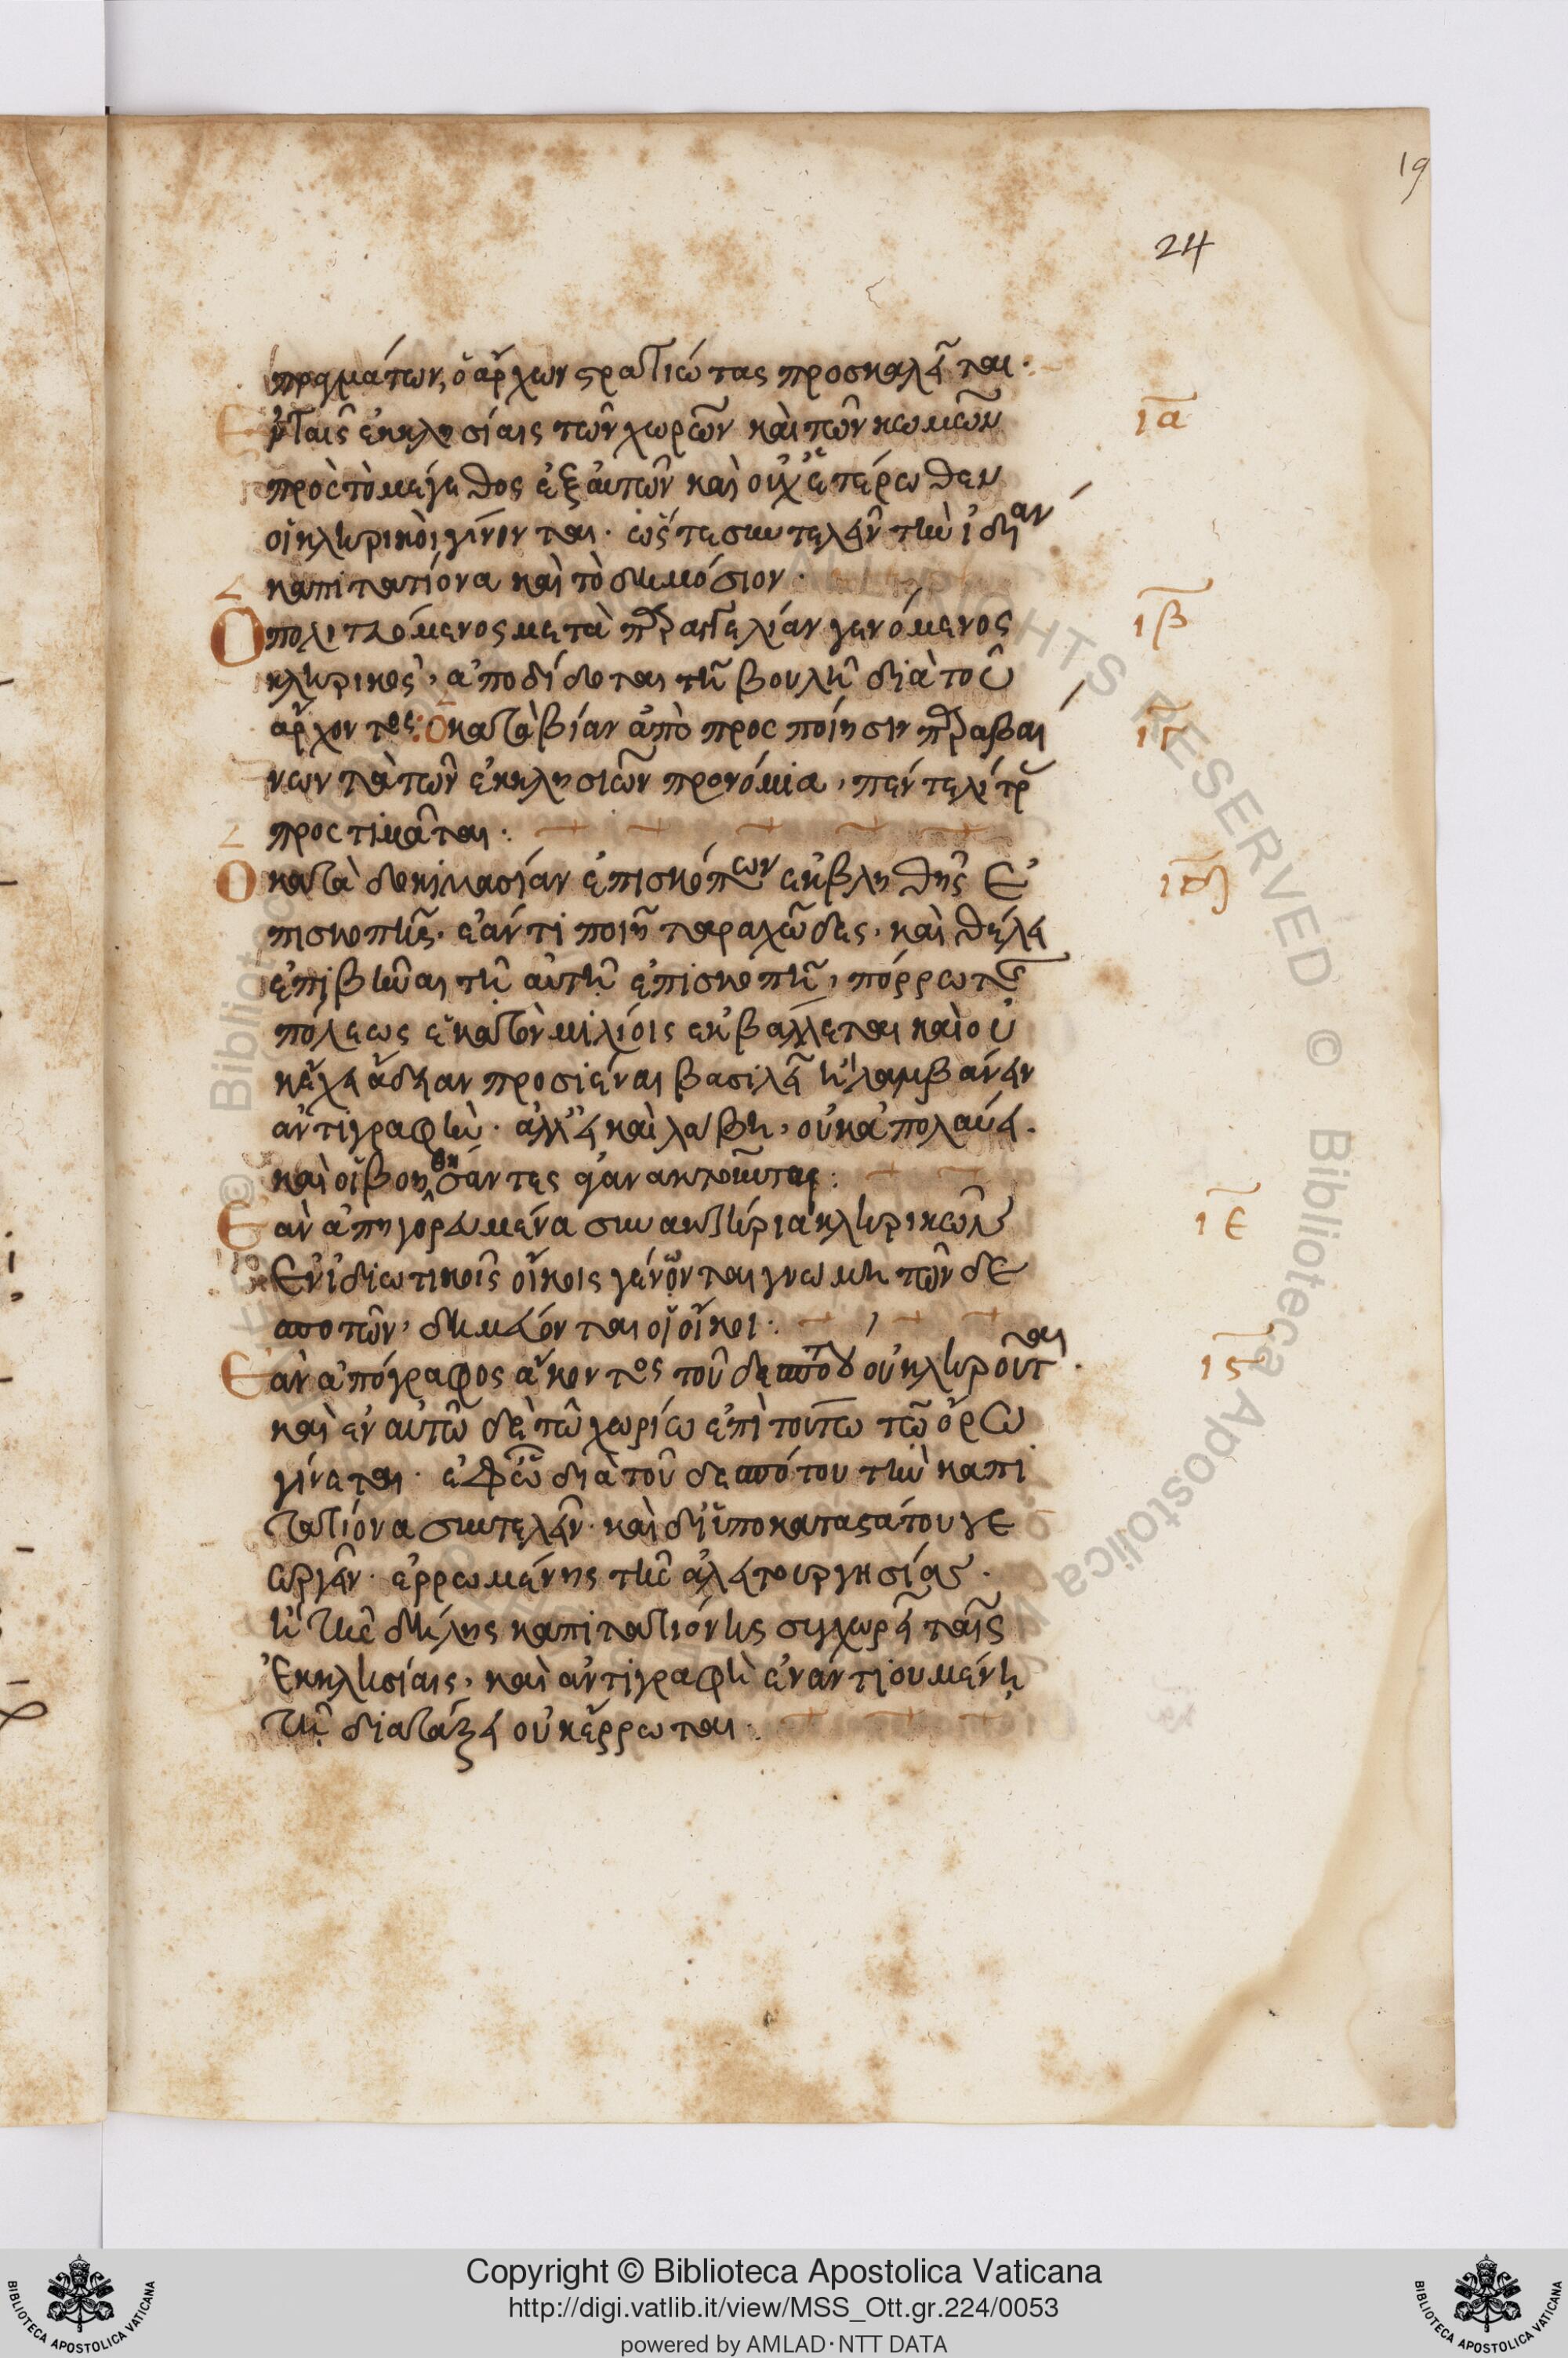 19
24
πραγμάτων, ὁ ἄρχων στρατιώτας προσκαλεῖται·
Ἐν ταῖς ἐκκλησίαις τῶν χωρῶν καὶ τῶν κωμῶν ια
πρὸς τὸ μέγεθος ἐξ αὐτῶν καὶ οὐχ ἑτέρωθεν
οἱ κληρικοὶ γίνονται· ὥστε συντελεῖν τὴν ἰδίαν
καπιτατίονα καὶ τὸ δημόσιον·
Ὁ πολιτευόμενος μετὰ παραγγελίαν γενόμενος ιβ
κληρικὸς, ἀποδίδοται τῇ βουλῇ διὰ τοῦ
ἄρχοντος: Ὁ κατὰ βίαν ἀπὸ προσποίησιν παραβαί ιγ
νων τὰ τῶν ἐκκλησιῶν προνόμια, πέντε λίτρ
προστιμᾶται·
Ὁ κατὰ δοκιμασίαν ἐπισκόπων ἐκβληθεὶς ἐ ιδ
πισκοπῆς· ἐάν τι ποιῇ ταραχῶδες· καὶ θέλει
ἐπιβῆναι τῇ αὐτῇ ἐπισκοπῇ, πόρρω τῆς
πόλεως ἑκατὸν μιλίοις ἐκβάλλεται καὶ οὐ
κ ἔχει ἄδειαν προσιέναι βασιλεῖ ἢ λαμβάνειν
ἀντιγραφὴν· ἀλλ' εἰ καὶ λάβῃ, οὐκ ἀπολαύει·
καὶ οἱ βοηθήσαντες ἀγανακτοῦνται:
Ἐὰν ἀπηγορευμένα συνακτήρια κληρικῶν ιε
Ἐν ἰδιωτικοῖς οἴκοις γένωνται γνώμῃ τῶν δε
σποτῶν, δημεύονται οἱ οἶκοι·
Ἐὰν ἀπόγραφος ἄκοντος τοῦ δεσπότου οὐ κληροῦται· ις
καὶ ἐν αὐτῷ δὲ τῷ χωρίῳ ἐπὶ τούτῳ τῷ ὅρῳ
γίνεται· ἐφ' ᾧ διὰ τοῦ δεσπότου τὴν καπι
τατίονα συντελεῖν· καὶ δι' ὑποκαταστάτου γε
ωργεῖν· ἐρρωμένης τῆς ἀλειτουργησίας·
ἢ τῆς δείλης καπιτατιόνης συγχωρεῖ ταῖς
Ἐκκλησίαις, καὶ ἀντιγραφὴ ἐναντιουμένη
τῇ διατάξει οὐκ ἔρρωται·
Copyright © Biblioteca Apostolica Vaticana
http://digi.vatlib.it/view/MSS_Ott.gr.224/0053
powered by AMLAD·NTT DATA